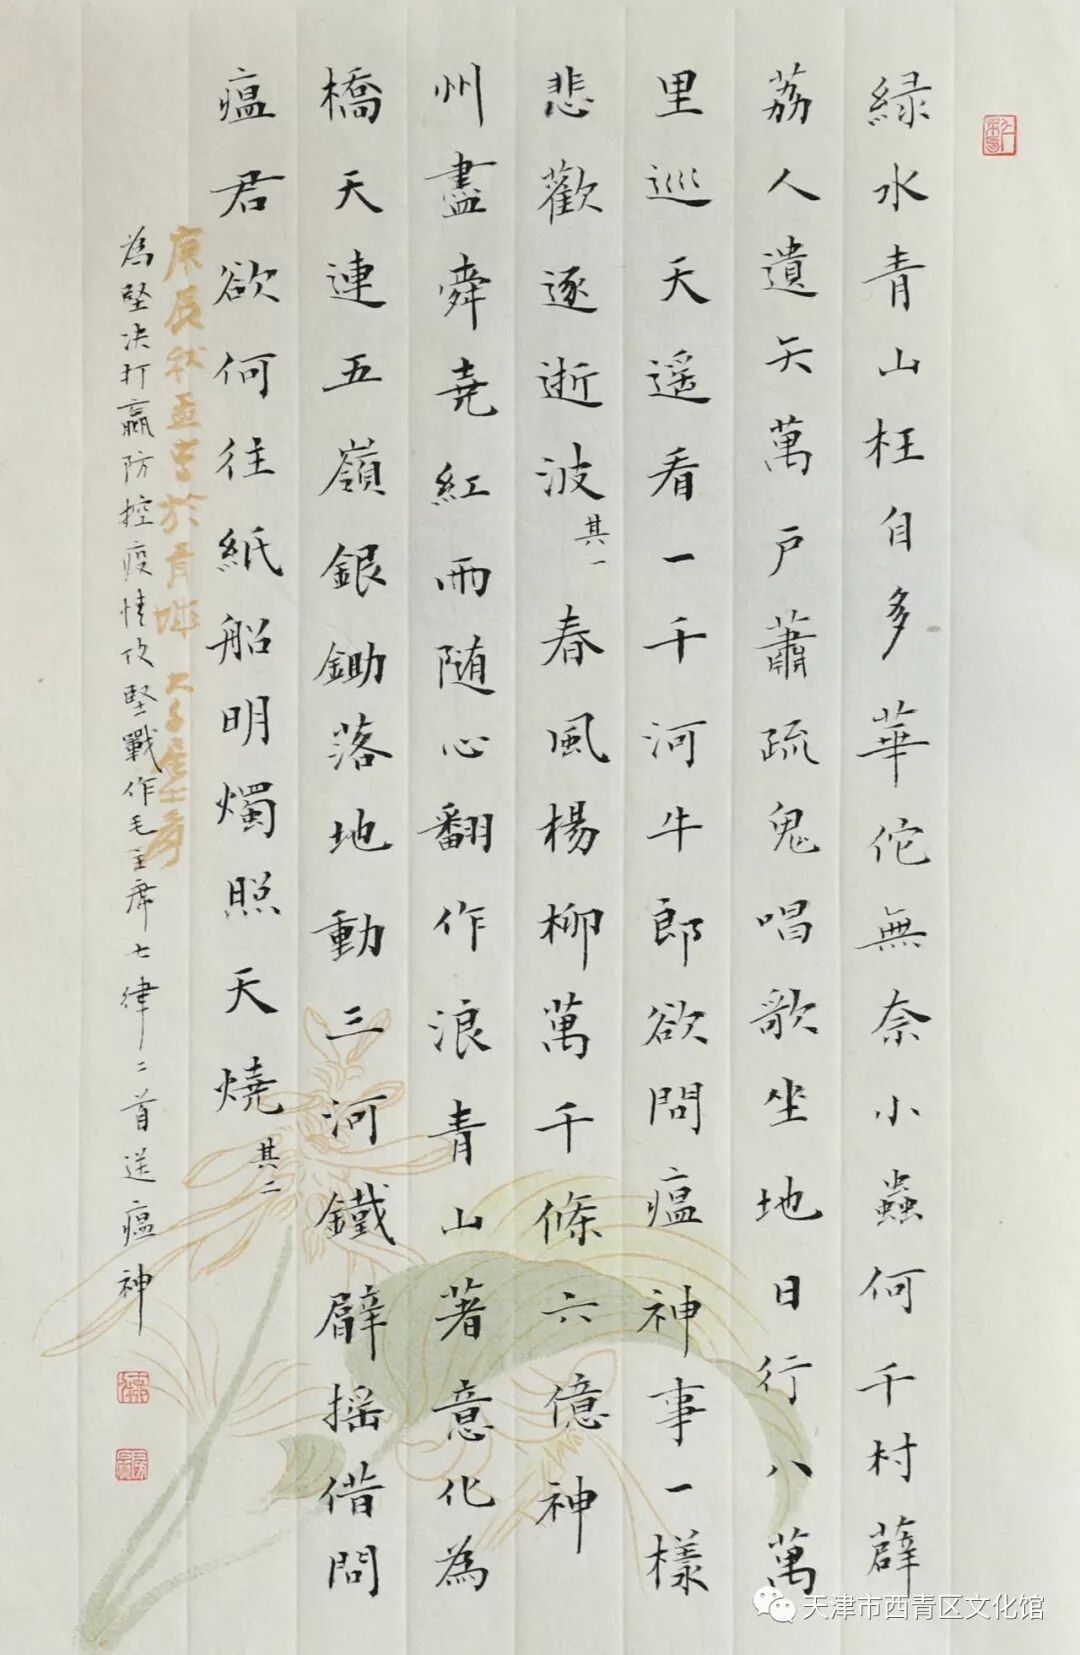 緑水青山枉自多華佗無奈小蟲何千村薜
荔人遺矢萬户蕭疏鬼唱歌坐地日行八萬
里巡天遥看一千河牛郎欲問瘟神事一樣
悲歡逐逝波其一春風楊柳萬千條六億神
州盡舜堯紅雨随心翻作浪青山著意化為
橋天連五嶺銀鋤落地動三河鐵臂摇借問
瘟君欲何往紙船明燭照天燒其二
庚辰秋孟於青城 大千居士爰
為堅决打贏防控疫情攻堅戰作毛主席七律二首送瘟神
天津市西青区文化馆